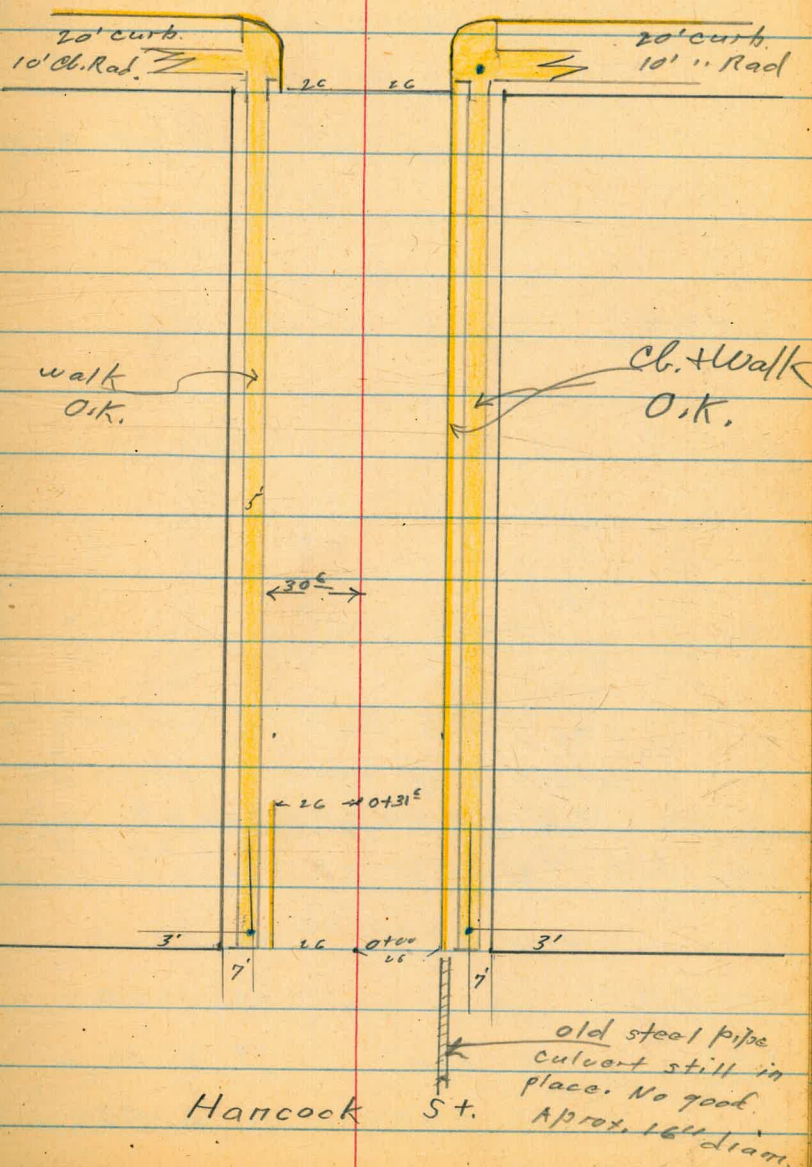 20' curb.
10' Cb. Rad.
20' curb.
10' " Rad
26 26
walk
O.K.
Cb. + Walk
O.K.
5'
30 6
26 0+31 6
3' 26 0+00 3'
26
7' 7'
old steel pipe
culvert still in
place. No good.
Aprox. 16" diam.
Hancock St.